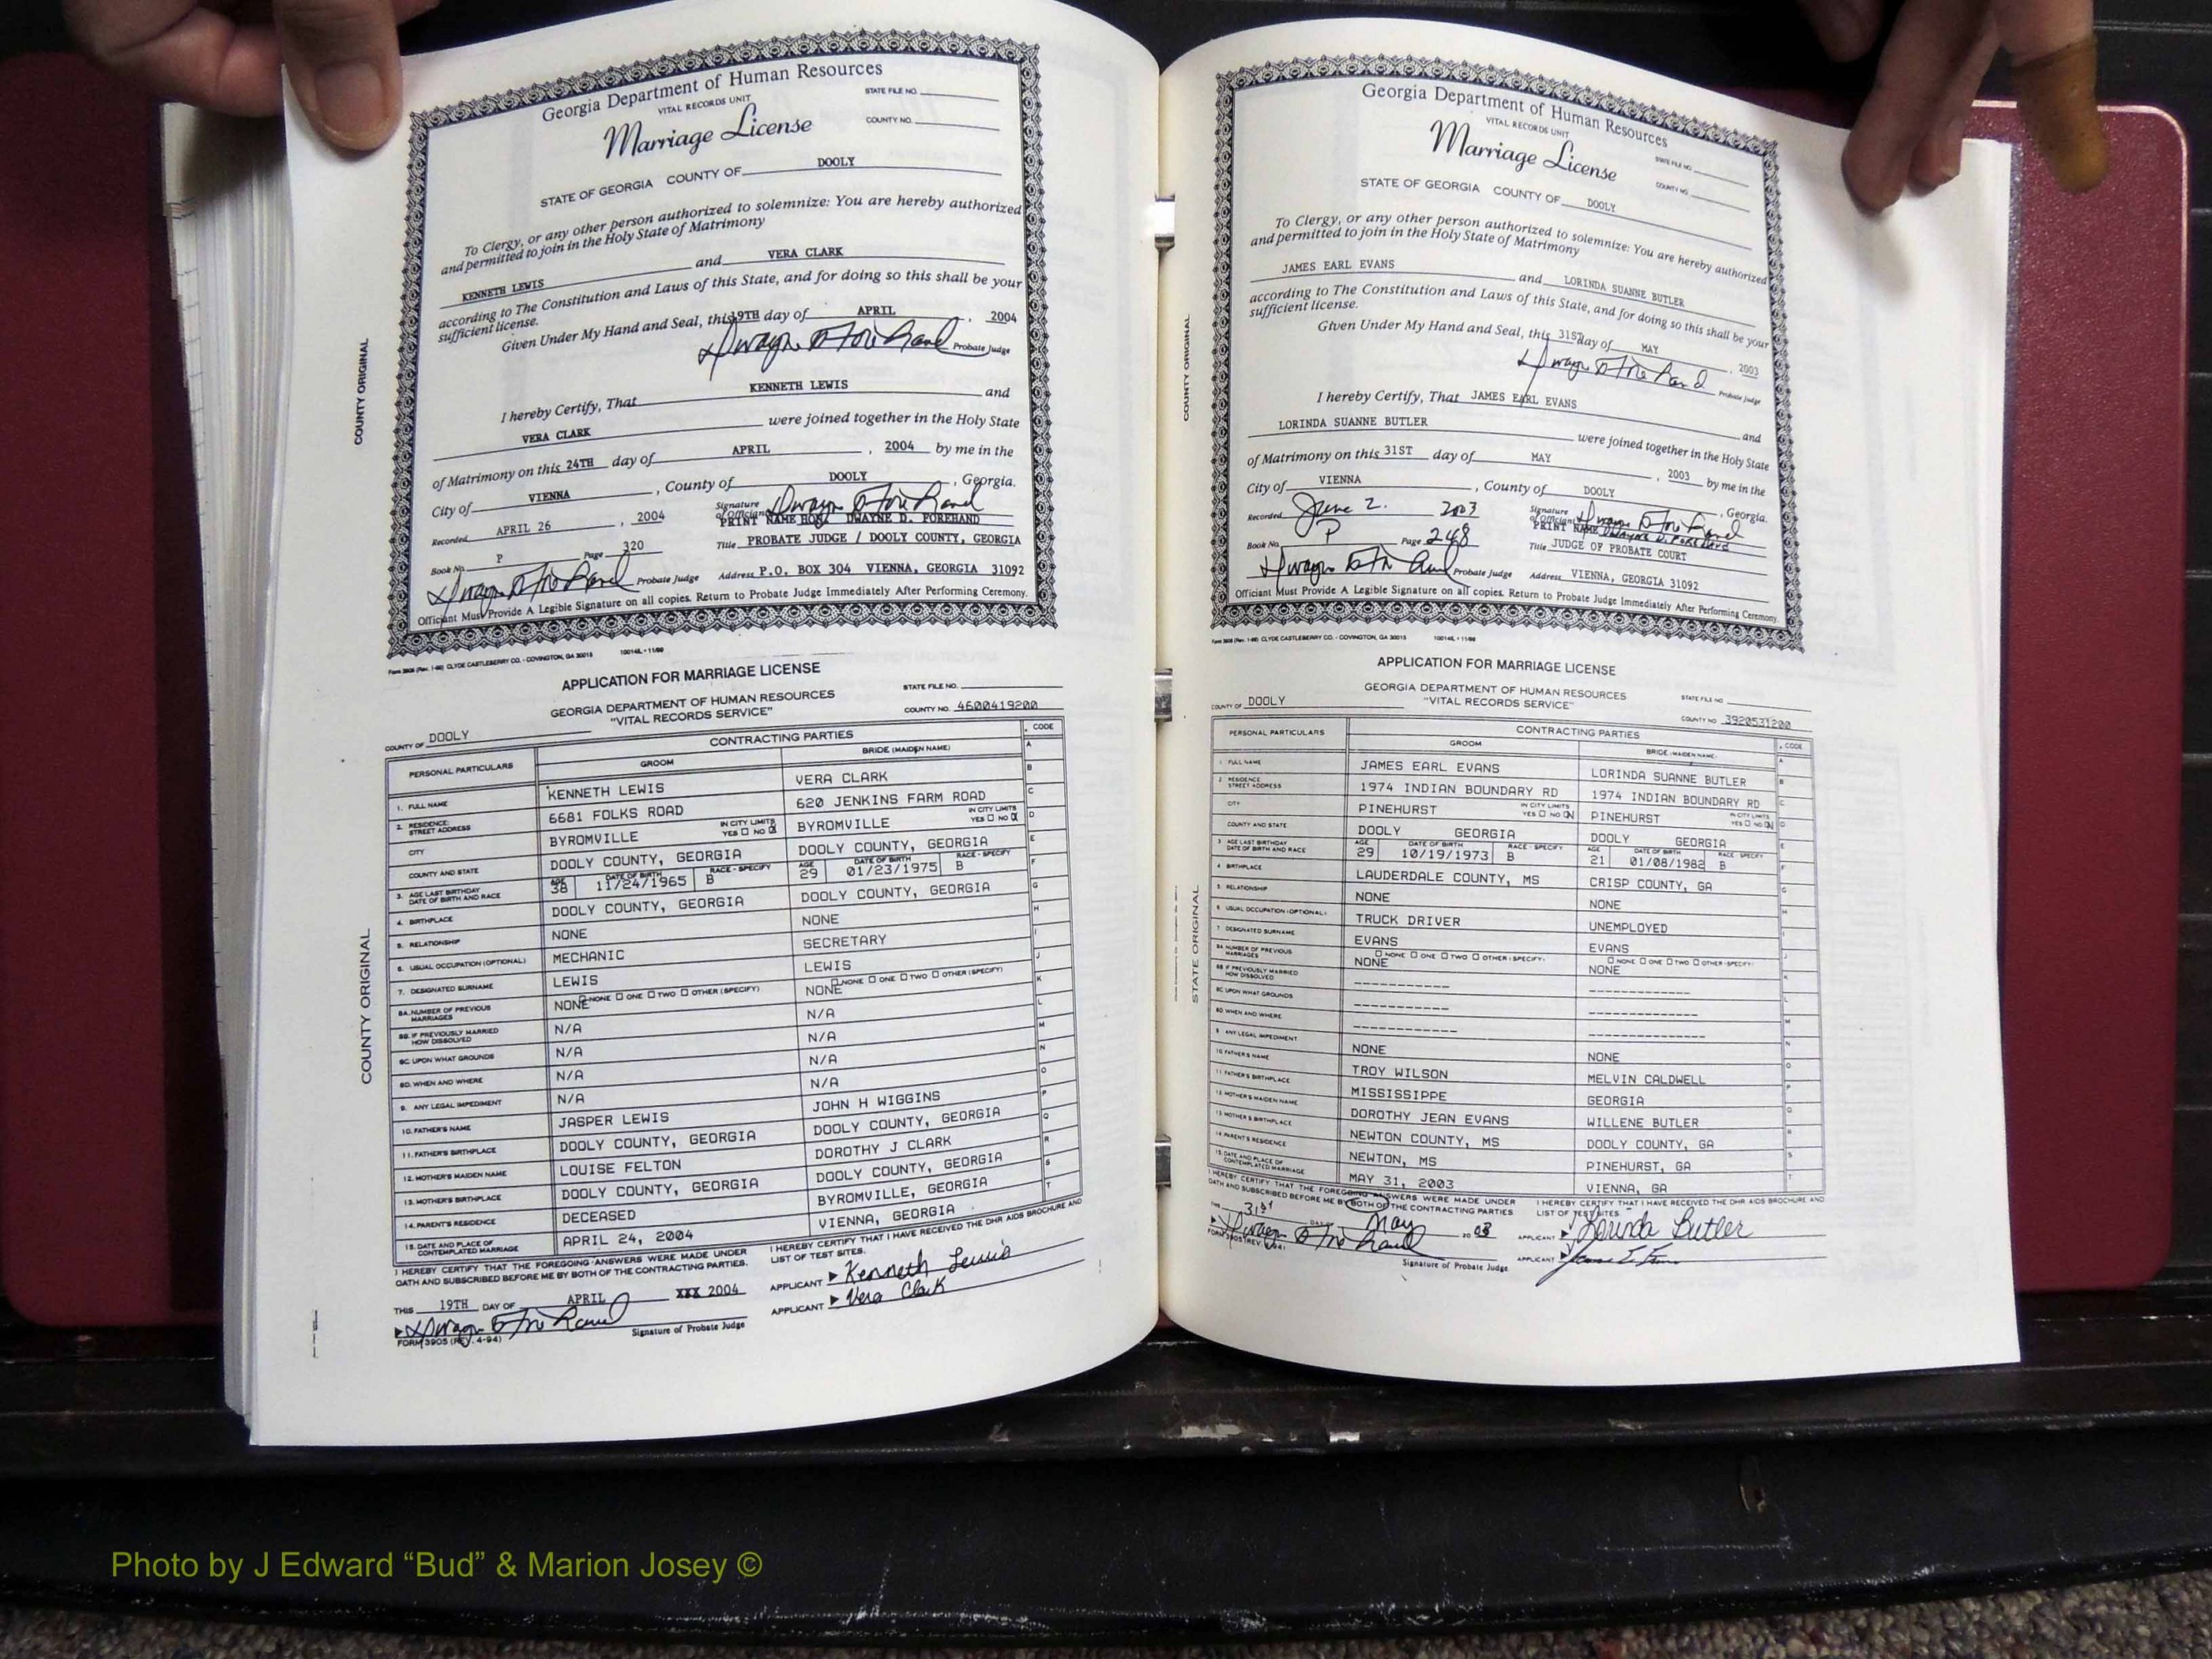 Georgia Department of Human Resources
VITAL RECORDS UNIT
STATE FILE NO.
Marriage License
COUNTY NO.
STATE OF GEORGIA COUNTY OF DOOLY
To Clergy, or any other person authorized to solemnize: You are hereby authorized
and permitted to join in the Holy State of Matrimony
KENNETH LEWIS and VERA CLARK
according to The Constitution and Laws of this State, and for doing so this shall be your
sufficient license.
Given Under My Hand and Seal, this 19TH day of APRIL, 2004
Probate Judge
I hereby Certify, That KENNETH LEWIS and
VERA CLARK were joined together in the Holy State
of Matrimony on this 24TH day of APRIL, 2004 by me in the
City of VIENNA, County of DOOLY, Georgia.
Recorded APRIL 26, 2004 Signature of Officiant
PRINT NAME HON. DWAYNE D. FOREHAND
Book No. P Page 320 Title PROBATE JUDGE / DOOLY COUNTY, GEORGIA
Probate Judge Address P.O. BOX 304 VIENNA, GEORGIA 31092
Officiant Must Provide A Legible Signature on all copies. Return to Probate Judge Immediately After Performing Ceremony.
COUNTY ORIGINAL
Form 3905 (Rev. 1-99) CLYDE CASTLEBERRY CO. - COVINGTON, GA 30015 10014L • 11/99
APPLICATION FOR MARRIAGE LICENSE
GEORGIA DEPARTMENT OF HUMAN RESOURCES
"VITAL RECORDS SERVICE"
STATE FILE NO.
COUNTY NO. 4600419200
COUNTY OF DOOLY
PERSONAL PARTICULARS CONTRACTING PARTIES CODE
GROOM BRIDE (MAIDEN NAME)
1. FULL NAME KENNETH LEWIS VERA CLARK
2. RESIDENCE: STREET ADDRESS 6681 FOLKS ROAD 620 JENKINS FARM ROAD
CITY BYROMVILLE IN CITY LIMITS YES ☐ NO ☒ BYROMVILLE IN CITY LIMITS YES ☐ NO ☒
COUNTY AND STATE DOOLY COUNTY, GEORGIA DOOLY COUNTY, GEORGIA
3. AGE LAST BIRTHDAY DATE OF BIRTH AND RACE AGE 38 DATE OF BIRTH 11/24/1965 RACE - SPECIFY B AGE 29 DATE OF BIRTH 01/23/1975 RACE - SPECIFY B
4. BIRTHPLACE DOOLY COUNTY, GEORGIA DOOLY COUNTY, GEORGIA
5. RELATIONSHIP NONE NONE
6. USUAL OCCUPATION (OPTIONAL) MECHANIC SECRETARY
7. DESIGNATED SURNAME LEWIS LEWIS
8A. NUMBER OF PREVIOUS MARRIAGES NONE ☐ NONE ☐ ONE ☐ TWO ☐ OTHER (SPECIFY) NONE ☐ NONE ☐ ONE ☐ TWO ☐ OTHER (SPECIFY)
8B. IF PREVIOUSLY MARRIED HOW DISSOLVED N/A N/A
8C. UPON WHAT GROUNDS N/A N/A
8D. WHEN AND WHERE N/A N/A
9. ANY LEGAL IMPEDIMENT N/A N/A
10. FATHER'S NAME JASPER LEWIS JOHN H WIGGINS
11. FATHER'S BIRTHPLACE DOOLY COUNTY, GEORGIA DOOLY COUNTY, GEORGIA
12. MOTHER'S MAIDEN NAME LOUISE FELTON DOROTHY J CLARK
13. MOTHER'S BIRTHPLACE DOOLY COUNTY, GEORGIA DOOLY COUNTY, GEORGIA
14. PARENT'S RESIDENCE DECEASED BYROMVILLE, GEORGIA
15. DATE AND PLACE OF CONTEMPLATED MARRIAGE APRIL 24, 2004 VIENNA, GEORGIA
I HEREBY CERTIFY THAT THE FOREGOING ANSWERS WERE MADE UNDER OATH AND SUBSCRIBED BEFORE ME BY BOTH OF THE CONTRACTING PARTIES.
I HEREBY CERTIFY THAT I HAVE RECEIVED THE DHR AIDS BROCHURE AND LIST OF TEST SITES.
THIS 19TH DAY OF APRIL XXX 2004
APPLICANT Kenneth Lewis
APPLICANT Vera Clark
Signature of Probate Judge
FORM 3905 (REV. 4-94)
COUNTY ORIGINAL
Georgia Department of Human Resources
VITAL RECORDS UNIT
Marriage License
STATE FILE NO.
COUNTY NO.
STATE OF GEORGIA COUNTY OF DOOLY
To Clergy, or any other person authorized to solemnize: You are hereby authorized
and permitted to join in the Holy State of Matrimony
JAMES EARL EVANS and LORINDA SUANNE BUTLER
according to The Constitution and Laws of this State, and for doing so this shall be your
sufficient license.
Given Under My Hand and Seal, this 31ST day of MAY, 2003
Probate Judge
I hereby Certify, That JAMES EARL EVANS and
LORINDA SUANNE BUTLER were joined together in the Holy State
of Matrimony on this 31ST day of MAY, 2003 by me in the
City of VIENNA, County of DOOLY, Georgia.
Recorded June 2. 2003 Signature of Officiant
PRINT NAME DWAYNE D. FOREHAND
Book No. P Page 248 Title JUDGE OF PROBATE COURT
Probate Judge Address VIENNA, GEORGIA 31092
Officiant Must Provide A Legible Signature on all copies. Return to Probate Judge Immediately After Performing Ceremony.
COUNTY ORIGINAL
Form 3905 (Rev. 1-99) CLYDE CASTLEBERRY CO. - COVINGTON, GA 30015 10014L • 11/99
APPLICATION FOR MARRIAGE LICENSE
GEORGIA DEPARTMENT OF HUMAN RESOURCES
"VITAL RECORDS SERVICE"
STATE FILE NO.
COUNTY NO. 3920531200
COUNTY OF DOOLY
PERSONAL PARTICULARS CONTRACTING PARTIES CODE
GROOM BRIDE (MAIDEN NAME)
1. FULL NAME JAMES EARL EVANS LORINDA SUANNE BUTLER
2. RESIDENCE STREET ADDRESS 1974 INDIAN BOUNDARY RD 1974 INDIAN BOUNDARY RD
CITY PINEHURST IN CITY LIMITS YES ☐ NO ☒ PINEHURST IN CITY LIMITS YES ☐ NO ☒
COUNTY AND STATE DOOLY GEORGIA DOOLY GEORGIA
3. AGE LAST BIRTHDAY DATE OF BIRTH AND RACE AGE 29 DATE OF BIRTH 10/19/1973 RACE - SPECIFY B AGE 21 DATE OF BIRTH 01/08/1982 RACE - SPECIFY B
4. BIRTHPLACE LAUDERDALE COUNTY, MS CRISP COUNTY, GA
5. RELATIONSHIP NONE NONE
6. USUAL OCCUPATION (OPTIONAL) TRUCK DRIVER UNEMPLOYED
7. DESIGNATED SURNAME EVANS EVANS
8A. NUMBER OF PREVIOUS MARRIAGES ☐ NONE ☐ ONE ☐ TWO ☐ OTHER (SPECIFY) NONE ☐ NONE ☐ ONE ☐ TWO ☐ OTHER (SPECIFY) NONE
8B. IF PREVIOUSLY MARRIED HOW DISSOLVED ------------ ------------
8C. UPON WHAT GROUNDS ------------ ------------
8D. WHEN AND WHERE ------------ ------------
9. ANY LEGAL IMPEDIMENT NONE NONE
10. FATHER'S NAME TROY WILSON MELVIN CALDWELL
11. FATHER'S BIRTHPLACE MISSISSIPPE GEORGIA
12. MOTHER'S MAIDEN NAME DOROTHY JEAN EVANS WILLENE BUTLER
13. MOTHER'S BIRTHPLACE NEWTON COUNTY, MS DOOLY COUNTY, GA
14. PARENT'S RESIDENCE NEWTON, MS PINEHURST, GA
15. DATE AND PLACE OF CONTEMPLATED MARRIAGE MAY 31, 2003 VIENNA, GA
I HEREBY CERTIFY THAT THE FOREGOING ANSWERS WERE MADE UNDER OATH AND SUBSCRIBED BEFORE ME BY BOTH OF THE CONTRACTING PARTIES
I HEREBY CERTIFY THAT I HAVE RECEIVED THE DHR AIDS BROCHURE AND LIST OF TEST SITES
THIS 31st DAY OF May 2003
APPLICANT Lorinda Butler
APPLICANT
Signature of Probate Judge
STATE ORIGINAL
Photo by J Edward “Bud” & Marion Josey ©